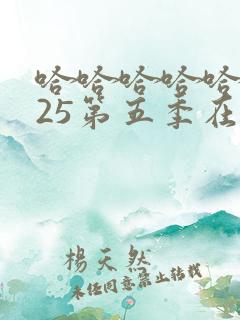 哈哈哈哈哈
25第五季在
楊天然
未经同意禁止转载